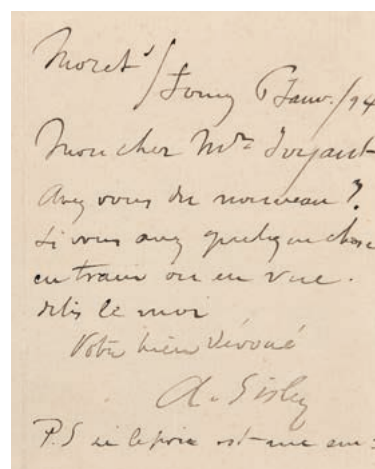 Moret s/Loing 6 Janv./94
Mon cher Mr Joyant
Avez vous du nouveau ?
Si vous avez quelque chose
en train ou en vue.
dites le moi
Votre bien dévoué
A. Sisley
P.S si le prix est une